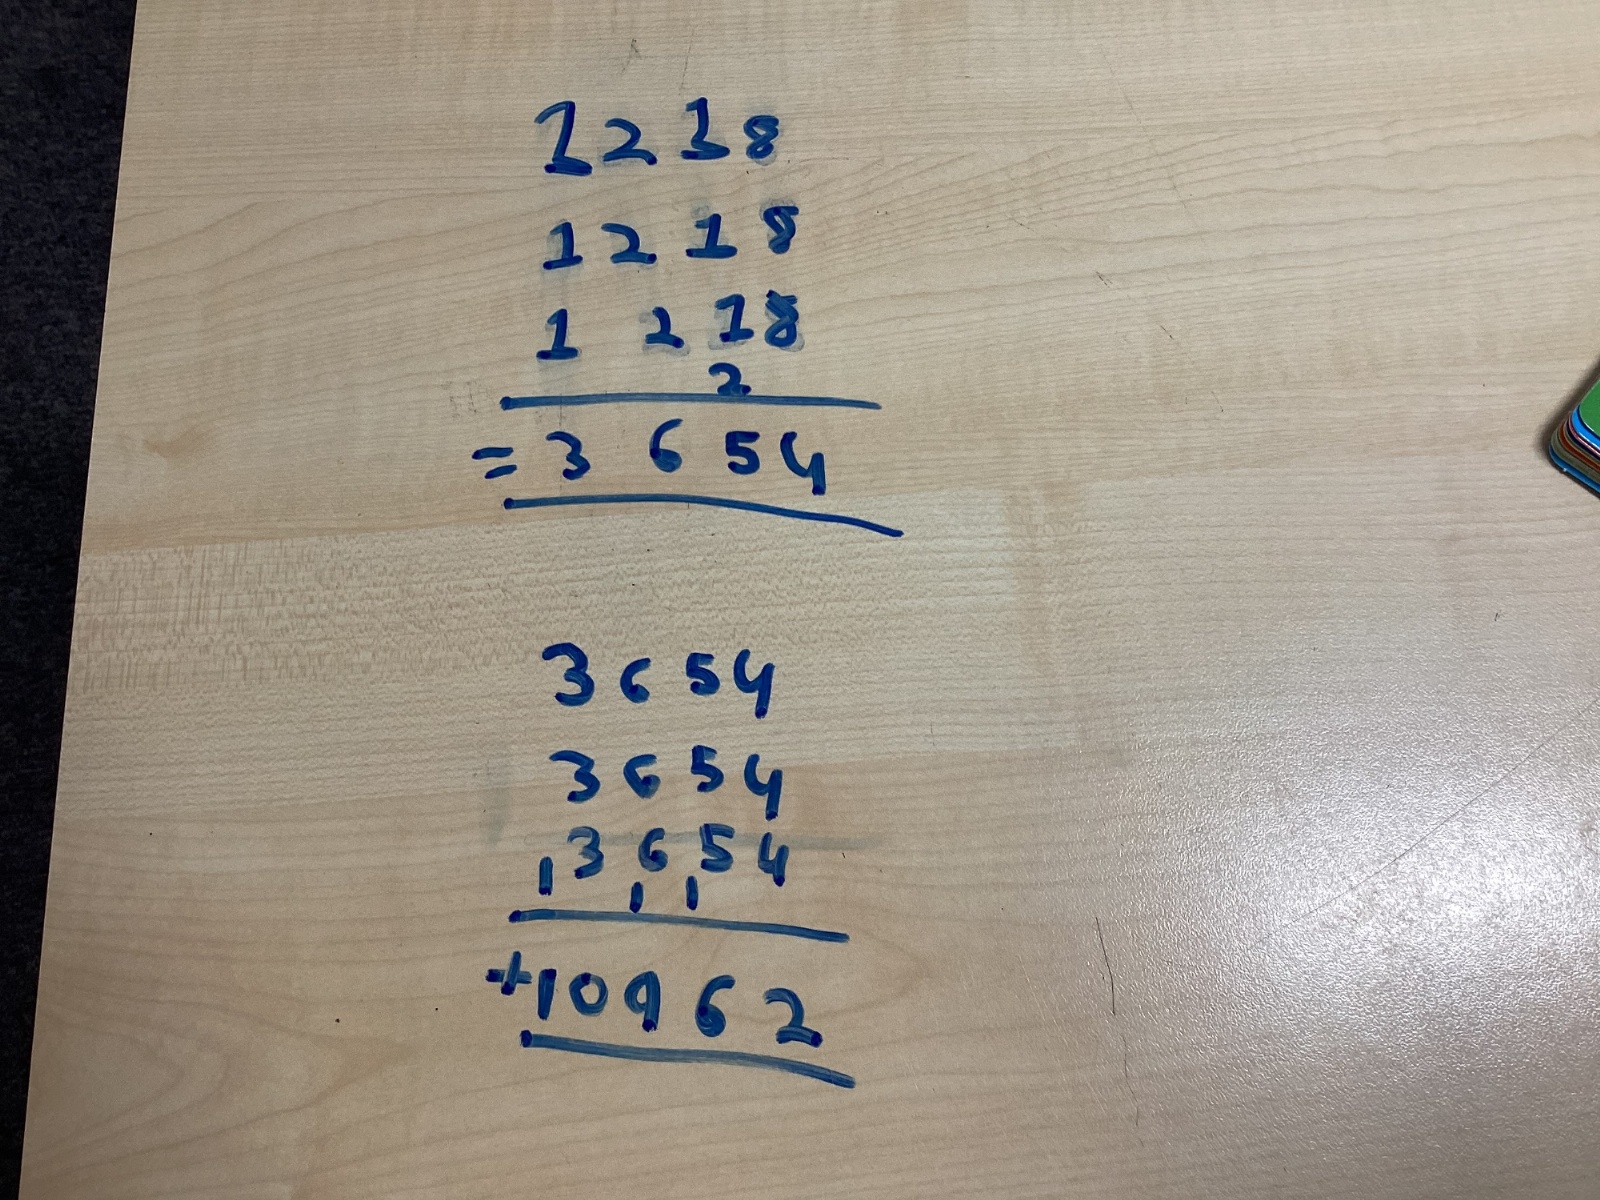 1218
1218
1218
2
= 3654
3654
3654
3654
1 1 1
+10962